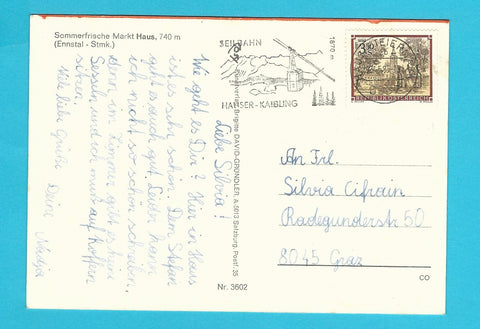 Sommerfrische Markt Haus, 740 m
(Ennstal - Stmk.)
Liebe Silvia!
Wie geht es Dir? Hier in Haus
ist es sehr schön. Dem Stefan
geht's auch gut. Leider kann
ich nicht so schön schreiben,
denn im Zimmer gibt es kein
Sesseln und ich muß auf Koffern
sitzen.
Viele liebe Grüße
Deine
SEILBAHN
1870 m
HAUSER-KAIBLING
REPUBLIK ÖSTERREICH
Brigitte DAVID-GRÜNDLER, A-5013 Salzburg, Postf. 35
Nr. 3602
An Frl.
Silvia Cifrain
Radegunderstr 50
8045 Graz
CO